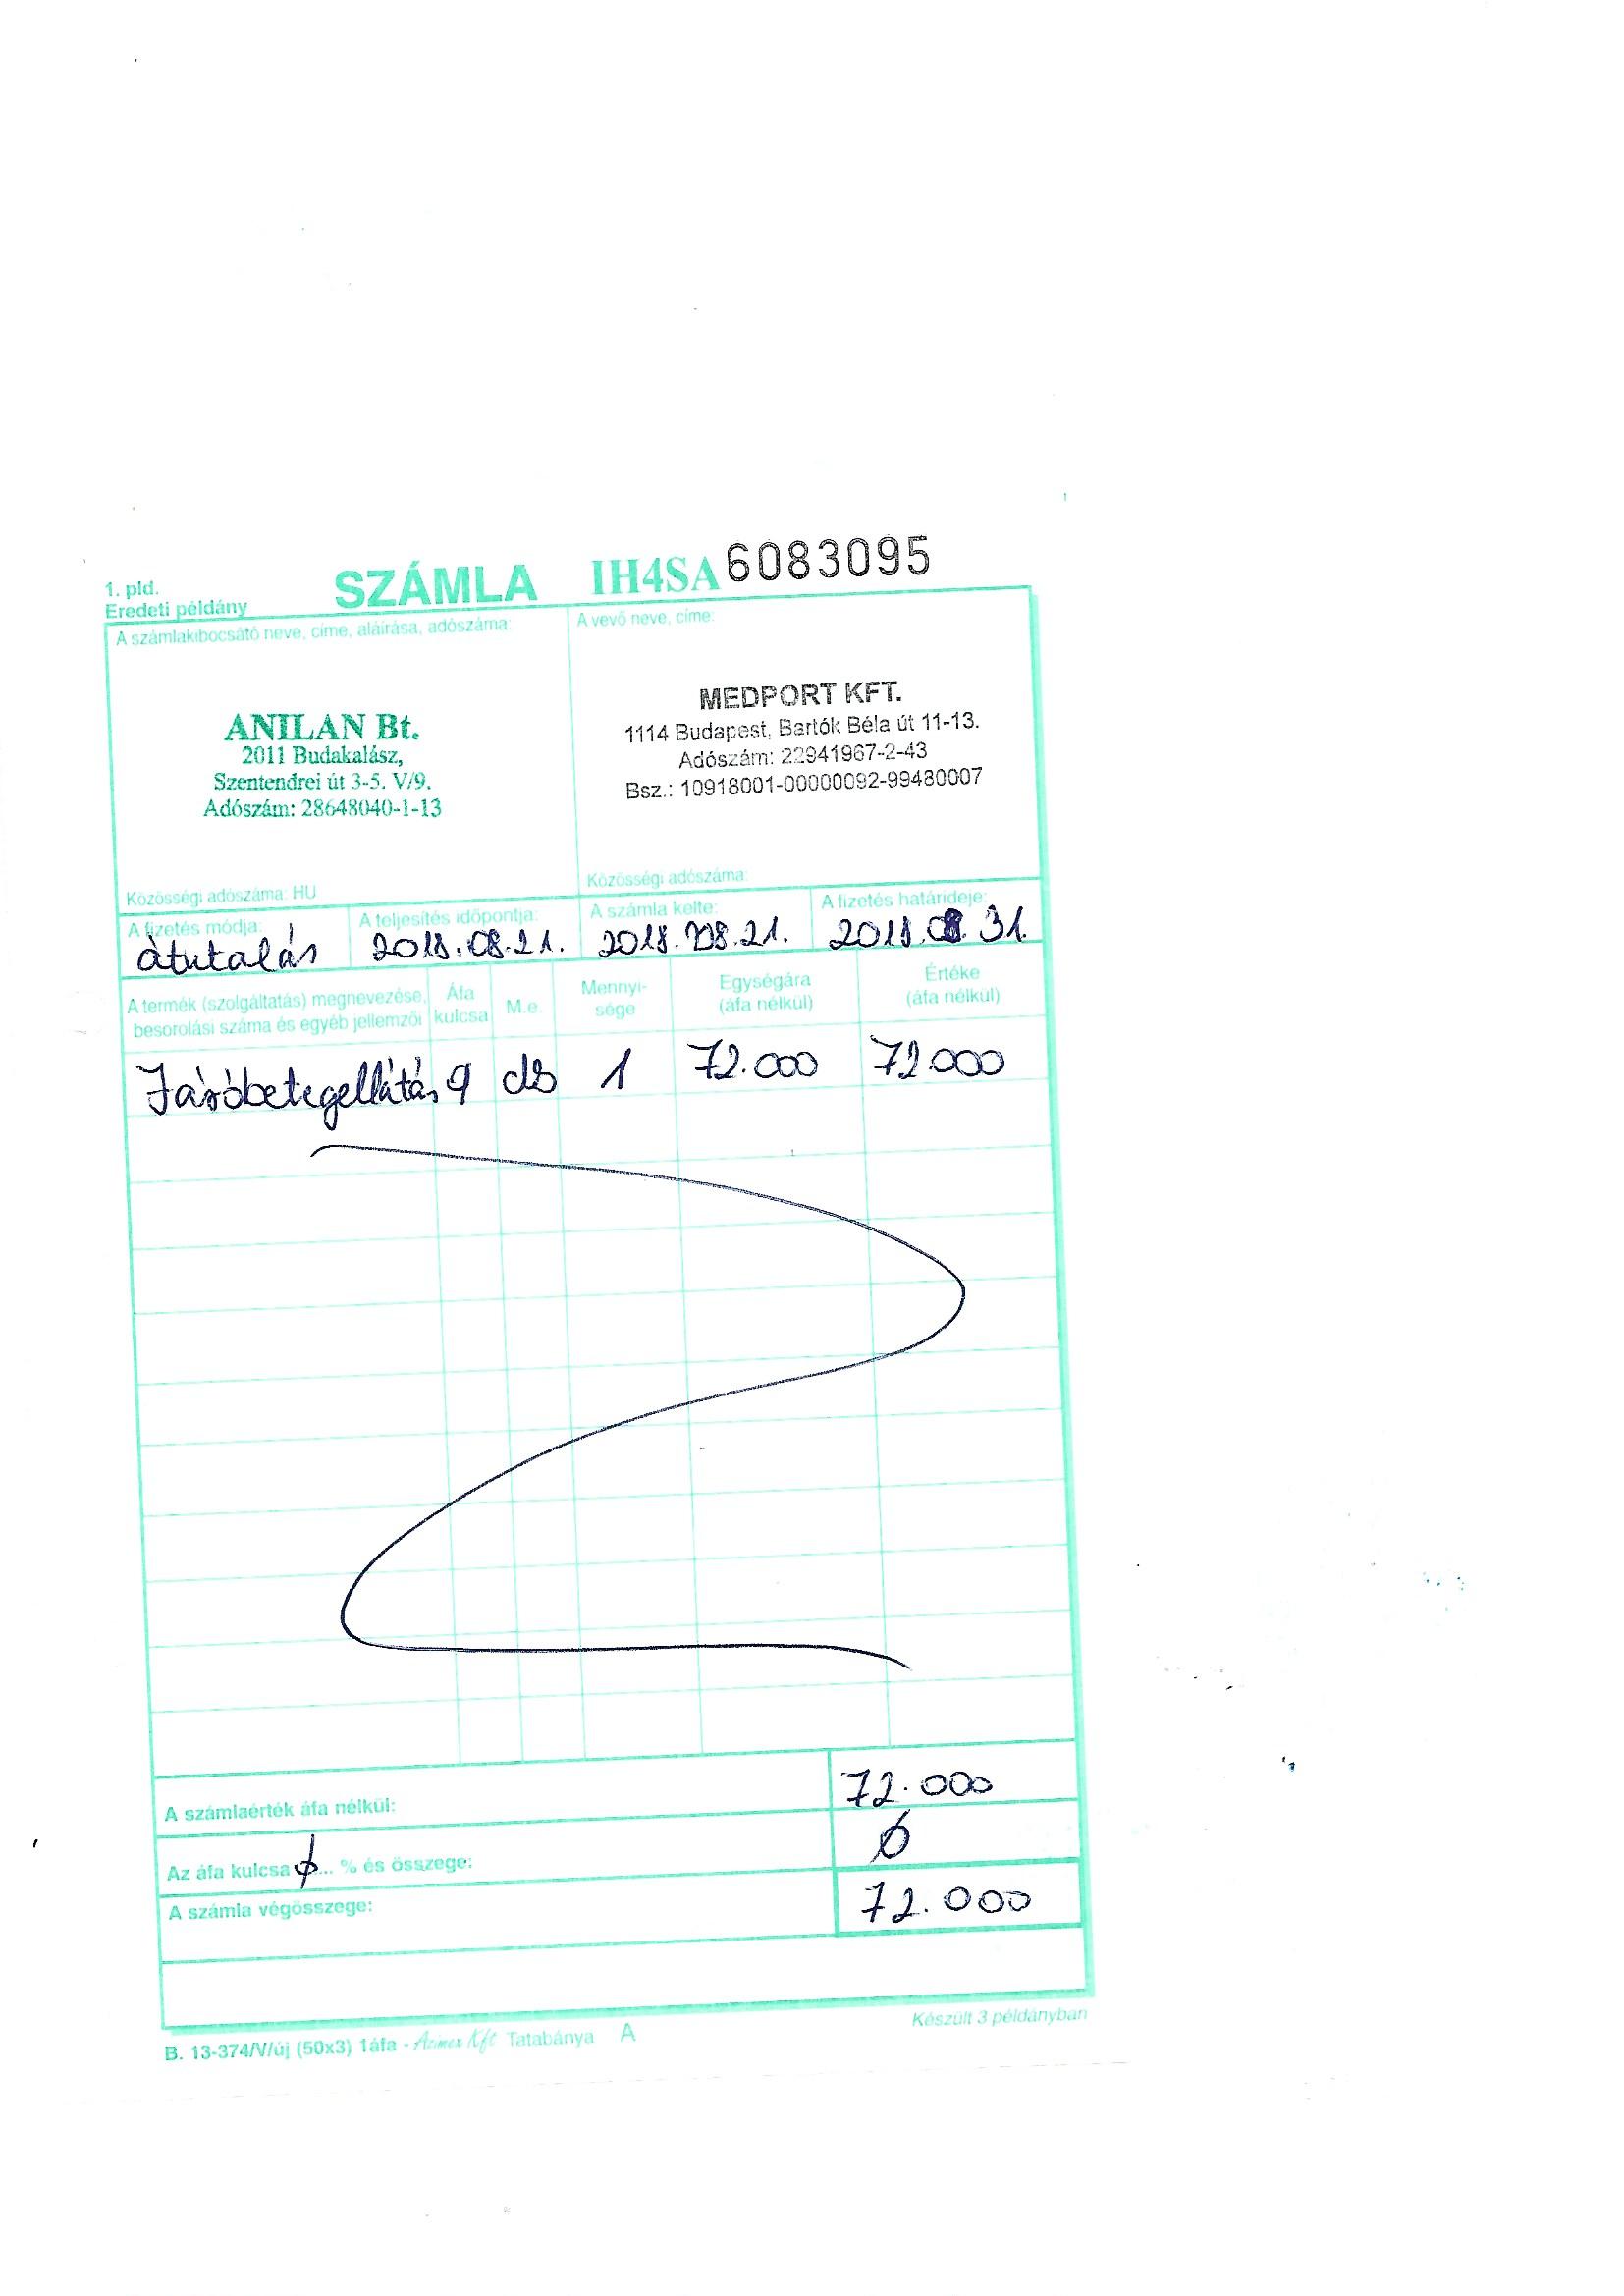 1. pld.
Eredeti példány
SZÁMLA IH4SA 6083095
A számlakibocsátó neve, címe, aláírása, adószáma:
ANILAN Bt.
2011 Budakalász,
Szentendrei út 3-5. V/9.
Adószám: 28648040-1-13
Közösségi adószáma: HU
A vevő neve, címe:
MEDPORT KFT.
1114 Budapest, Bartók Béla út 11-13.
Adószám: 22941967-2-43
Bsz.: 10918001-00000092-99480007
Közösségi adószáma:
A fizetés módja: A teljesítés időpontja: A számla kelte: A fizetés határideje:
átutalás 2018.08.21. 2018.08.21. 2018.08.31.
A termék (szolgáltatás) megnevezése, besorolási száma és egyéb jellemzői Áfa kulcsa M.e. Mennyi-sége Egységára (áfa nélkül) Értéke (áfa nélkül)
Járóbetegellátás db 1 72.000 72.000
A számlaérték áfa nélkül: 72.000
Az áfa kulcsa 0 ... % és összege: 0
A számla végösszege: 72.000
Készült 3 példányban
B. 13-374/V/új (50x3) 1áfa - Acimex Kft Tatabánya A